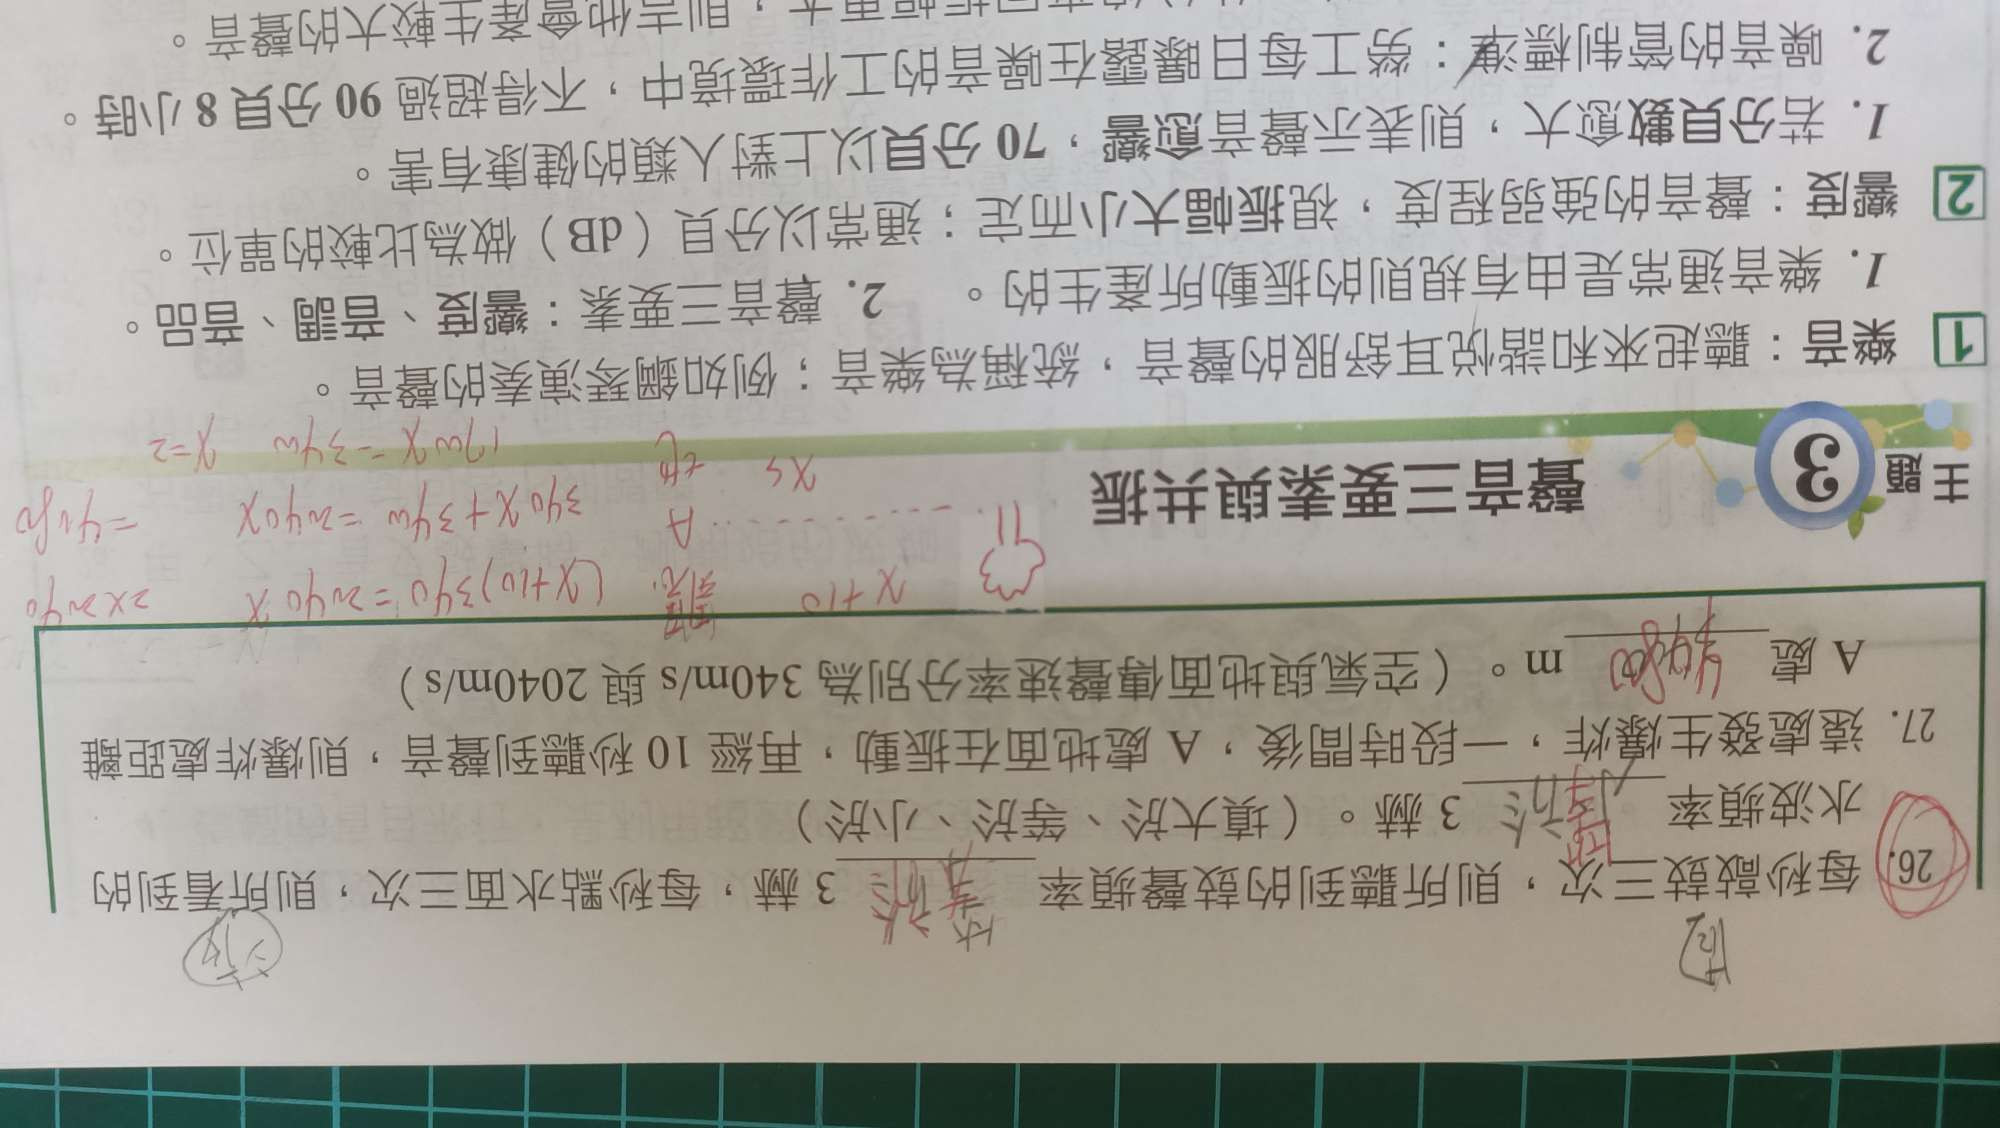 26. 每秒敲鼓三次，則所聽到的鼓聲頻率 等於 3 赫，每秒點水面三次，則所看到的
水波頻率 等於 3 赫。（填大於、等於、小於）
27. 遠處發生爆炸，一段時間後，A 處地面在振動，再經 10 秒聽到聲音，則爆炸處距離
A 處 4080 m。（空氣與地面傳聲速率分別為 340m/s 與 2040m/s）
x+10 (x+10)340=2040x 2x2040
A 340x+3400=2040x =4080
xs 地 1700x=3400 x=2
主題 3 聲音三要素與共振
1 樂音：聽起來和諧悅耳舒服的聲音，統稱為樂音；例如鋼琴演奏的聲音。
1. 樂音通常是由有規則的振動所產生的。 2. 聲音三要素：響度、音調、音品。
2 響度：聲音的強弱程度，視振幅大小而定；通常以分貝（dB）做為比較的單位。
1. 若分貝數愈大，則表示聲音愈響，70 分貝以上對人類的健康有害。
2. 噪音的管制標準：勞工每日曝露在噪音的工作環境中，不得超過 90 分貝 8 小時。
則吉他會產生較大的聲音。